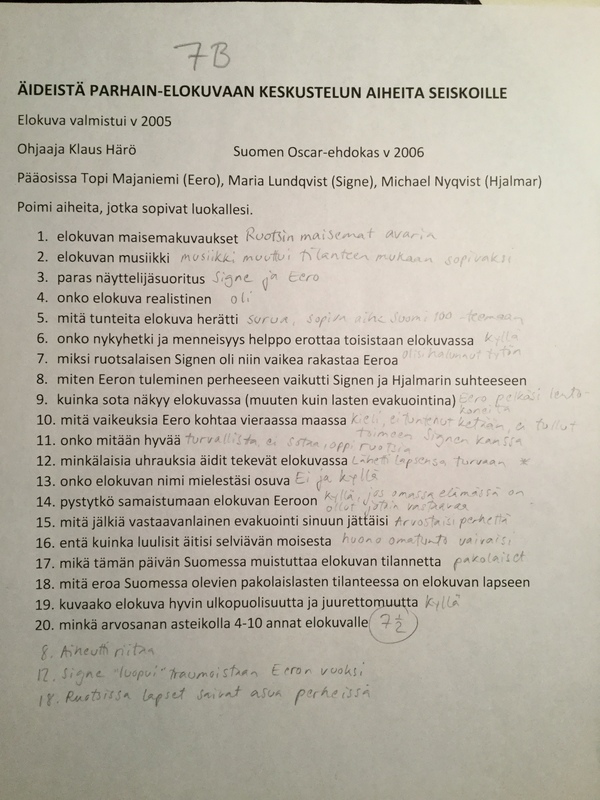 7B
ÄIDEISTÄ PARHAIN-ELOKUVAAN KESKUSTELUN AIHEITA SEISKOILLE
Elokuva valmistui v 2005
Ohjaaja Klaus Härö Suomen Oscar-ehdokas v 2006
Pääosissa Topi Majaniemi (Eero), Maria Lundqvist (Signe), Michael Nyqvist (Hjalmar)
Poimi aiheita, jotka sopivat luokallesi.
1. elokuvan maisemakuvaukset Ruotsin maisemat avaria
2. elokuvan musiikki musiikki muutui tilanteen mukaan sopivaksi
3. paras näyttelijäsuoritus Signe ja Eero
4. onko elokuva realistinen oli
5. mitä tunteita elokuva herätti surua, sopiva aihe Suomi 100 -teemaan
6. onko nykyhetki ja menneisyys helppo erottaa toisistaan elokuvassa kyllä
7. miksi ruotsalaisen Signen oli niin vaikea rakastaa Eeroa olisi halunnut tytön
8. miten Eeron tuleminen perheeseen vaikutti Signen ja Hjalmarin suhteeseen
9. kuinka sota näkyy elokuvassa (muuten kuin lasten evakuointina) Eero pelkäsi lento-
koneita
10. mitä vaikeuksia Eero kohtaa vieraassa maassa kieli, ei tuntenut ketään, ei tullut
toimeen Signen kanssa
11. onko mitään hyvää turvallista, ei sotaa, oppi ruotsia
12. minkälaisia uhrauksia äidit tekevät elokuvassa Lähetti lapsensa turvaan *
13. onko elokuvan nimi mielestäsi osuva Ei ja kyllä
14. pystytkö samaistumaan elokuvan Eeroon kyllä, jos omassa elämässä on
ollut jotain vastaavaa
15. mitä jälkiä vastaavanlainen evakuointi sinuun jättäisi Arvostaisi perhettä
16. entä kuinka luulisit äitisi selviävän moisesta huono omatunto vaivaisi
17. mikä tämän päivän Suomessa muistuttaa elokuvan tilannetta pakolaiset
18. mitä eroa Suomessa olevien pakolaislasten tilanteessa on elokuvan lapseen
19. kuvaako elokuva hyvin ulkopuolisuutta ja juurettomuutta kyllä
20. minkä arvosanan asteikolla 4-10 annat elokuvalle 7 ½
8. Aiheutti riitaa
12. Signe "luopui" traumoistaan Eeron vuoksi
18. Ruotsissa lapset saivat asua perheissä